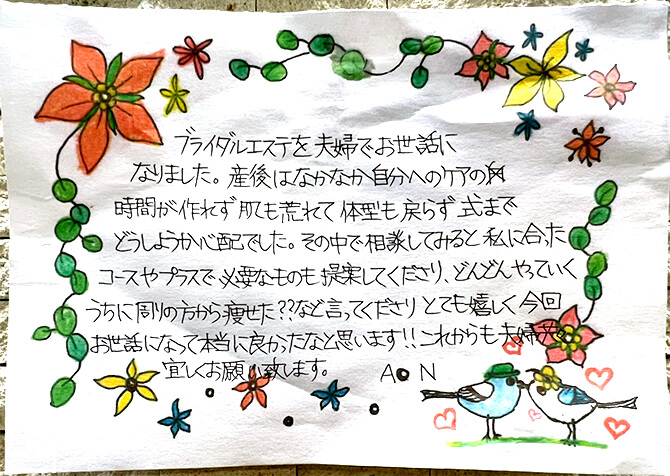 ブライダルエステを夫婦でお世話に
なりました。産後はなかなか自分へのケアの
時間が作れず肌も荒れて体型も戻らず式まで
どうしようか心配でした。その中で相談してみると私に合った
コースやプラスで必要なものも提案してくださり、どんどんやっていく
うちに周りの方から痩せた??など言ってくださりとても嬉しく今回
お世話になって本当に良かったなと思います!!これからも夫婦共々
宜しくお願い致します。 A N